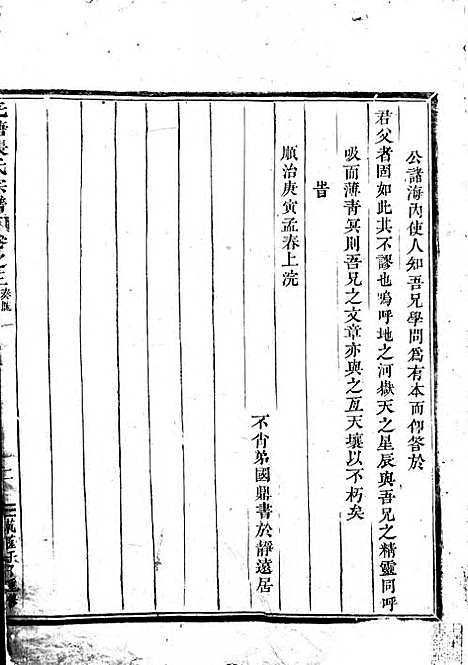 公諸海內使人知吾兄學問爲有本而仰答於
君父者固如此其不謬也嗚呼地之河嶽天之星辰與吾兄之精靈同呼
吸而薄靑冥則吾兄之文章亦與之亙天壤以不朽矣
旹
順治庚寅孟春上浣
不肖弟國鼎書於靜遠居
張氏宗譜 卷之三 奏疏